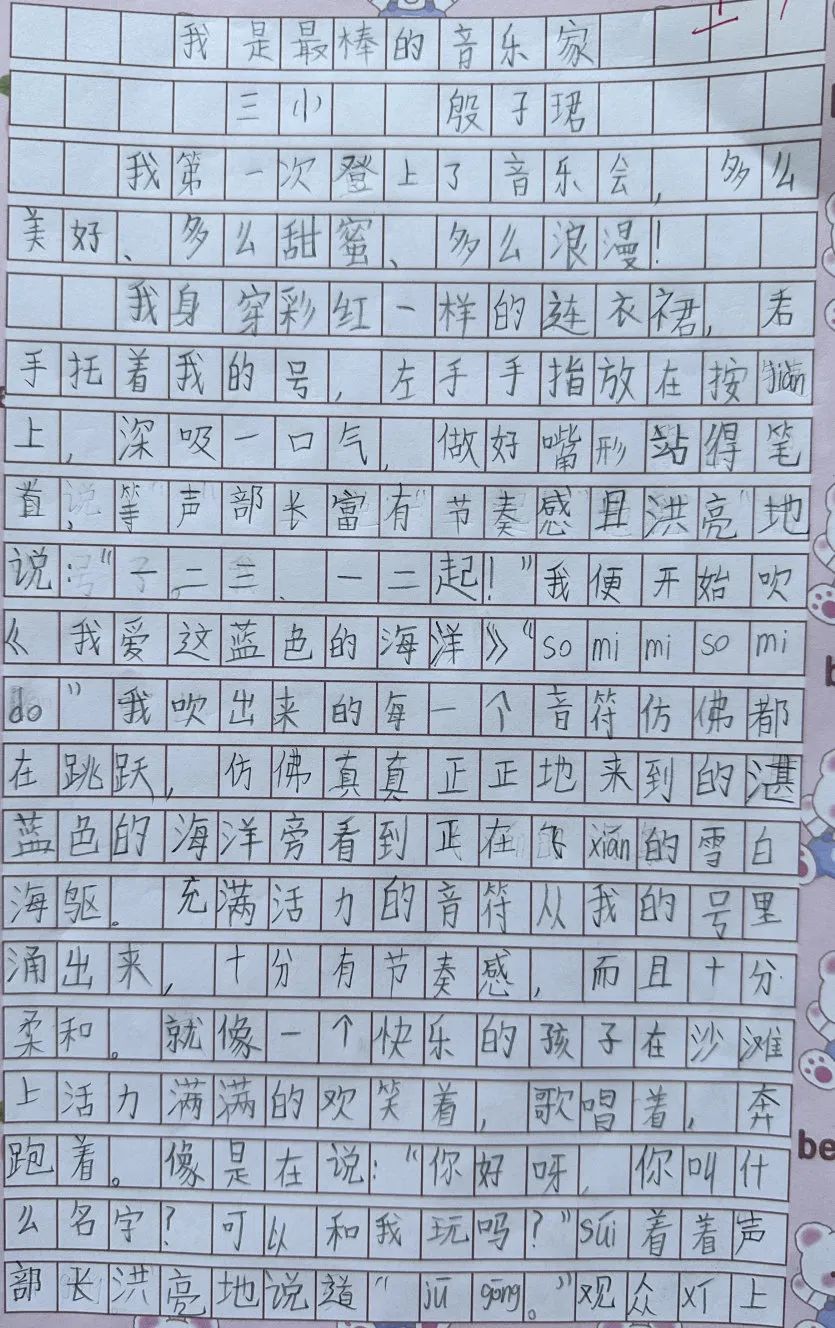 我是最棒的音乐家
三小 殷子珺
我第一次登上了音乐会，多么
美好、多么甜蜜、多么浪漫！
我身穿彩红一样的连衣裙，右
手托着我的号，左手手指放在按jiàn
上，深吸一口气，做好嘴形站得笔
直，等“声部长富有“节奏感且洪亮”地
说：“一二三、一二起！”我便开始吹
《我爱这蓝色的海洋》“so mi mi so mi
do”我吹出来的每一个音符仿佛都
在跳跃，仿佛真真正正地来到的湛
蓝色的海洋旁看到正在飞xiáng的雪白
海驱。充满活力的音符从我的号里
涌出来，十分有节奏感，而且十分
柔和。就像一个快乐的孩子在沙滩
上活力满满的欢笑着，歌唱着，奔
跑着。像是在说：“你好呀，你叫什
么名字？可以和我玩吗？”súi着着声
部长洪亮地说道“jū gōng。”观众
上
be